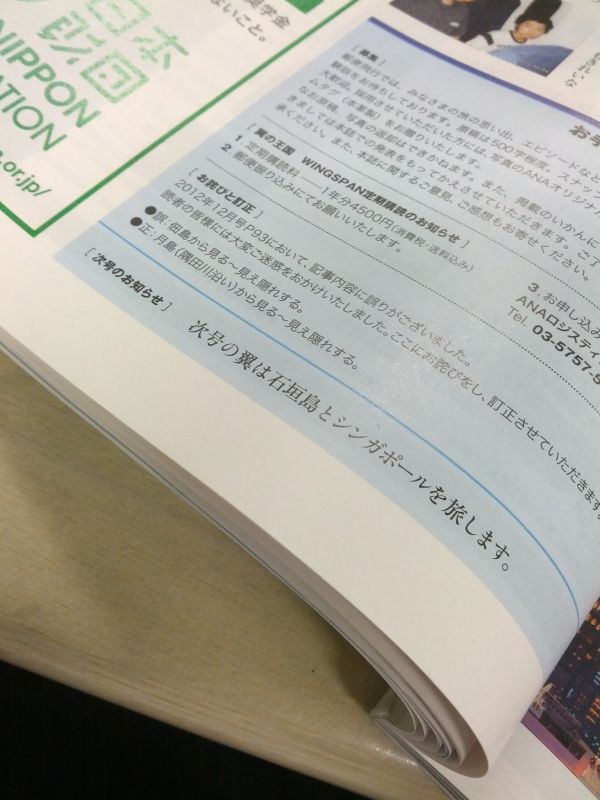 奨学金
ないこと。
日本
財団
NIPPON
ATION
.or.jp/
きれいな
お手
[ 募集 ]
郵便飛行では、みなさまの旅の思い出、エピソードなど
観談をお待ちしております。原稿は500字程度。スナップ
大歓迎。採用させていただいた方には、写真のANAオリジナル
ムタグ（本革製）をお贈りいたします。
なお原稿、写真の返却はできかねます。また、掲載のいかんに
きましては本誌での発表をもってかえさせていただきます。ご了
承ください。また、本誌に関するご意見、ご感想もお寄せください。
[ 翼の王国　WINGSPAN定期購読のお知らせ ]
1. 定期購読料──1年分4500円（消費税・送料込み）
2. 郵便振り込みにてお願いいたします。
3. お申し込み
ANAロジスティ
Tel. 03-5757-5
[ お詫びと訂正 ]
2012年12月号P93において、記事内容に誤りがございました。
読者の皆様には大変ご迷惑をおかけいたしました。ここにお詫びをし、訂正させていただきます。
●誤：佃島から見る〜見え隠れする。
●正：月島（隅田川沿い）から見る〜見え隠れする。
[ 次号のお知らせ ]
次号の翼は石垣島とシンガポールを旅します。